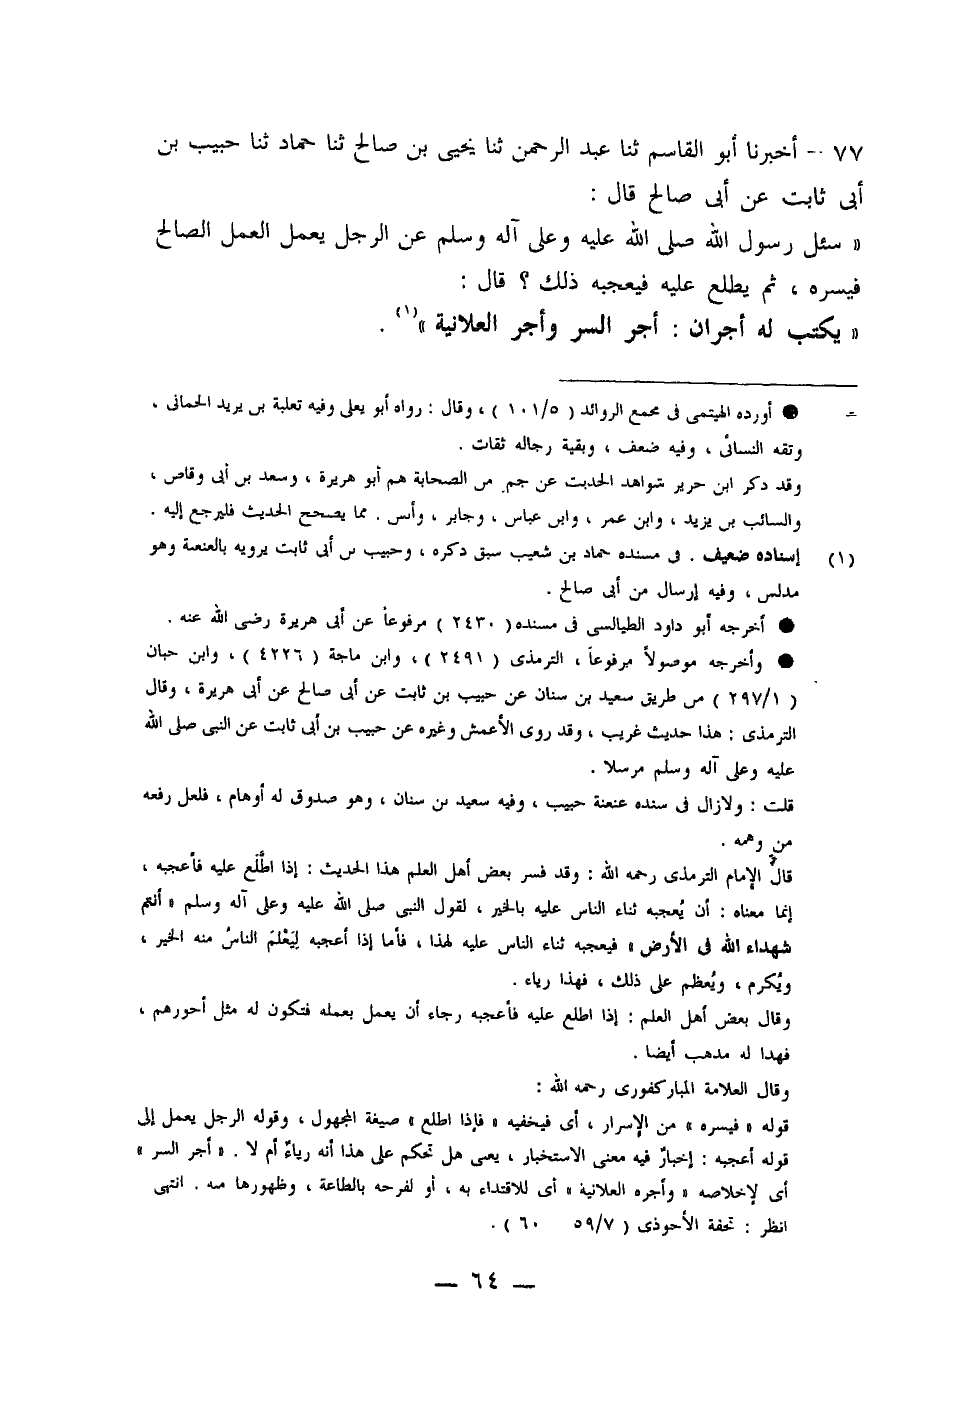 ٧٧ - أخبرنا أبو القاسم ثنا عبد الرحمن ثنا يحيى بن صالح ثنا حماد ثنا حبيب بن
أبى ثابت عن أبى صالح قال :
« سئل رسول الله صلى الله عليه وعلى آله وسلم عن الرجل يعمل العمل الصالح
فيسره ، ثم يطلع عليه فيعجبه ذلك ؟ قال :
« يكتب له أجران : أجر السر وأجر العلانية »(١) .
= ● أورده الهيتمى فى مجمع الزوائد ( ١٠١/٥ ) ، وقال : رواه أبو يعلى وفيه ثعلبة بن يريد الحمانى ،
وثقه النسائى ، وفيه ضعف ، وبقية رجاله ثقات .
وقد ذكر ابن حرير شواهد الحديث عن جمع من الصحابة هم أبو هريرة ، وسعد بن أبى وقاص ،
والسائب بن يزيد ، وابن عمر ، وابن عباس ، وجابر ، وأنس . مما يصحح الحديث فليرجع إليه .
(١) إسناده ضعيف . فى مسنده حماد بن شعيب سبق ذكره ، وحبيب بن أبى ثابت يرويه بالعنعنة وهو
مدلس ، وفيه إرسال من أبى صالح .
● أخرجه أبو داود الطيالسى فى مسنده( ٢٤٣٠ ) مرفوعاً عن أبى هريرة رضى الله عنه .
● وأخرجه موصولاً مرفوعاً ، الترمذى ( ٢٤٩١ ) ، وابن ماجة ( ٤٢٢٦ ) ، وابن حبان
( ٢٩٧/١ ) من طريق سعيد بن سنان عن حبيب بن ثابت عن أبى صالح عن أبى هريرة ، وقال
الترمذى : هذا حديث غريب ، وقد روى الأعمش وغيره عن حبيب بن أبى ثابت عن النبى صلى الله
عليه وعلى آله وسلم مرسلا .
قلت : ولازال فى سنده عنعنة حبيب ، وفيه سعيد بن سنان ، وهو صدوق له أوهام ، فلعل رفعه
من وهمه .
قال الإمام الترمذى رحمه الله : وقد فسر بعض أهل العلم هذا الحديث : إذا اطَّلَع عليه فأعجبه ،
إنما معناه : أن يُعجبه ثناء الناس عليه بالخير ، لقول النبى صلى الله عليه وعلى آله وسلم « أنتم
شهداء الله فى الأرض » فيعجبه ثناء الناس عليه لهذا ، فأما إذا أعجبه لِيَعْلمَ الناسُ منه الخير ،
ويُكرم ، ويُعظم على ذلك ، فهذا رياء .
وقال بعض أهل العلم : إذا اطلع عليه فأعجبه رجاء أن يعمل بعمله فتكون له مثل أحورهم ،
فهدا له مدهب أيضا .
وقال العلامة المباركفورى رحمه الله :
قوله « فيسره » من الإسرار ، أى فيخفيه « فإذا اطلع » صيغة المجهول ، وقوله الرجل يعمل إلى
قوله أعجبه : إخبارٌ فيه معنى الاستخبار ، يعى هل تحكم على هذا أنه رياءٌ أم لا . « أجر السر »
أى لإخلاصه « وأجره العلانية » أى للاقتداء به ، أو لفرحه بالطاعة ، وظهورها منه . انتهى
انظر : تحفة الأحوذى ( ٥٩/٧ ٦٠ ) .
— ٦٤ —